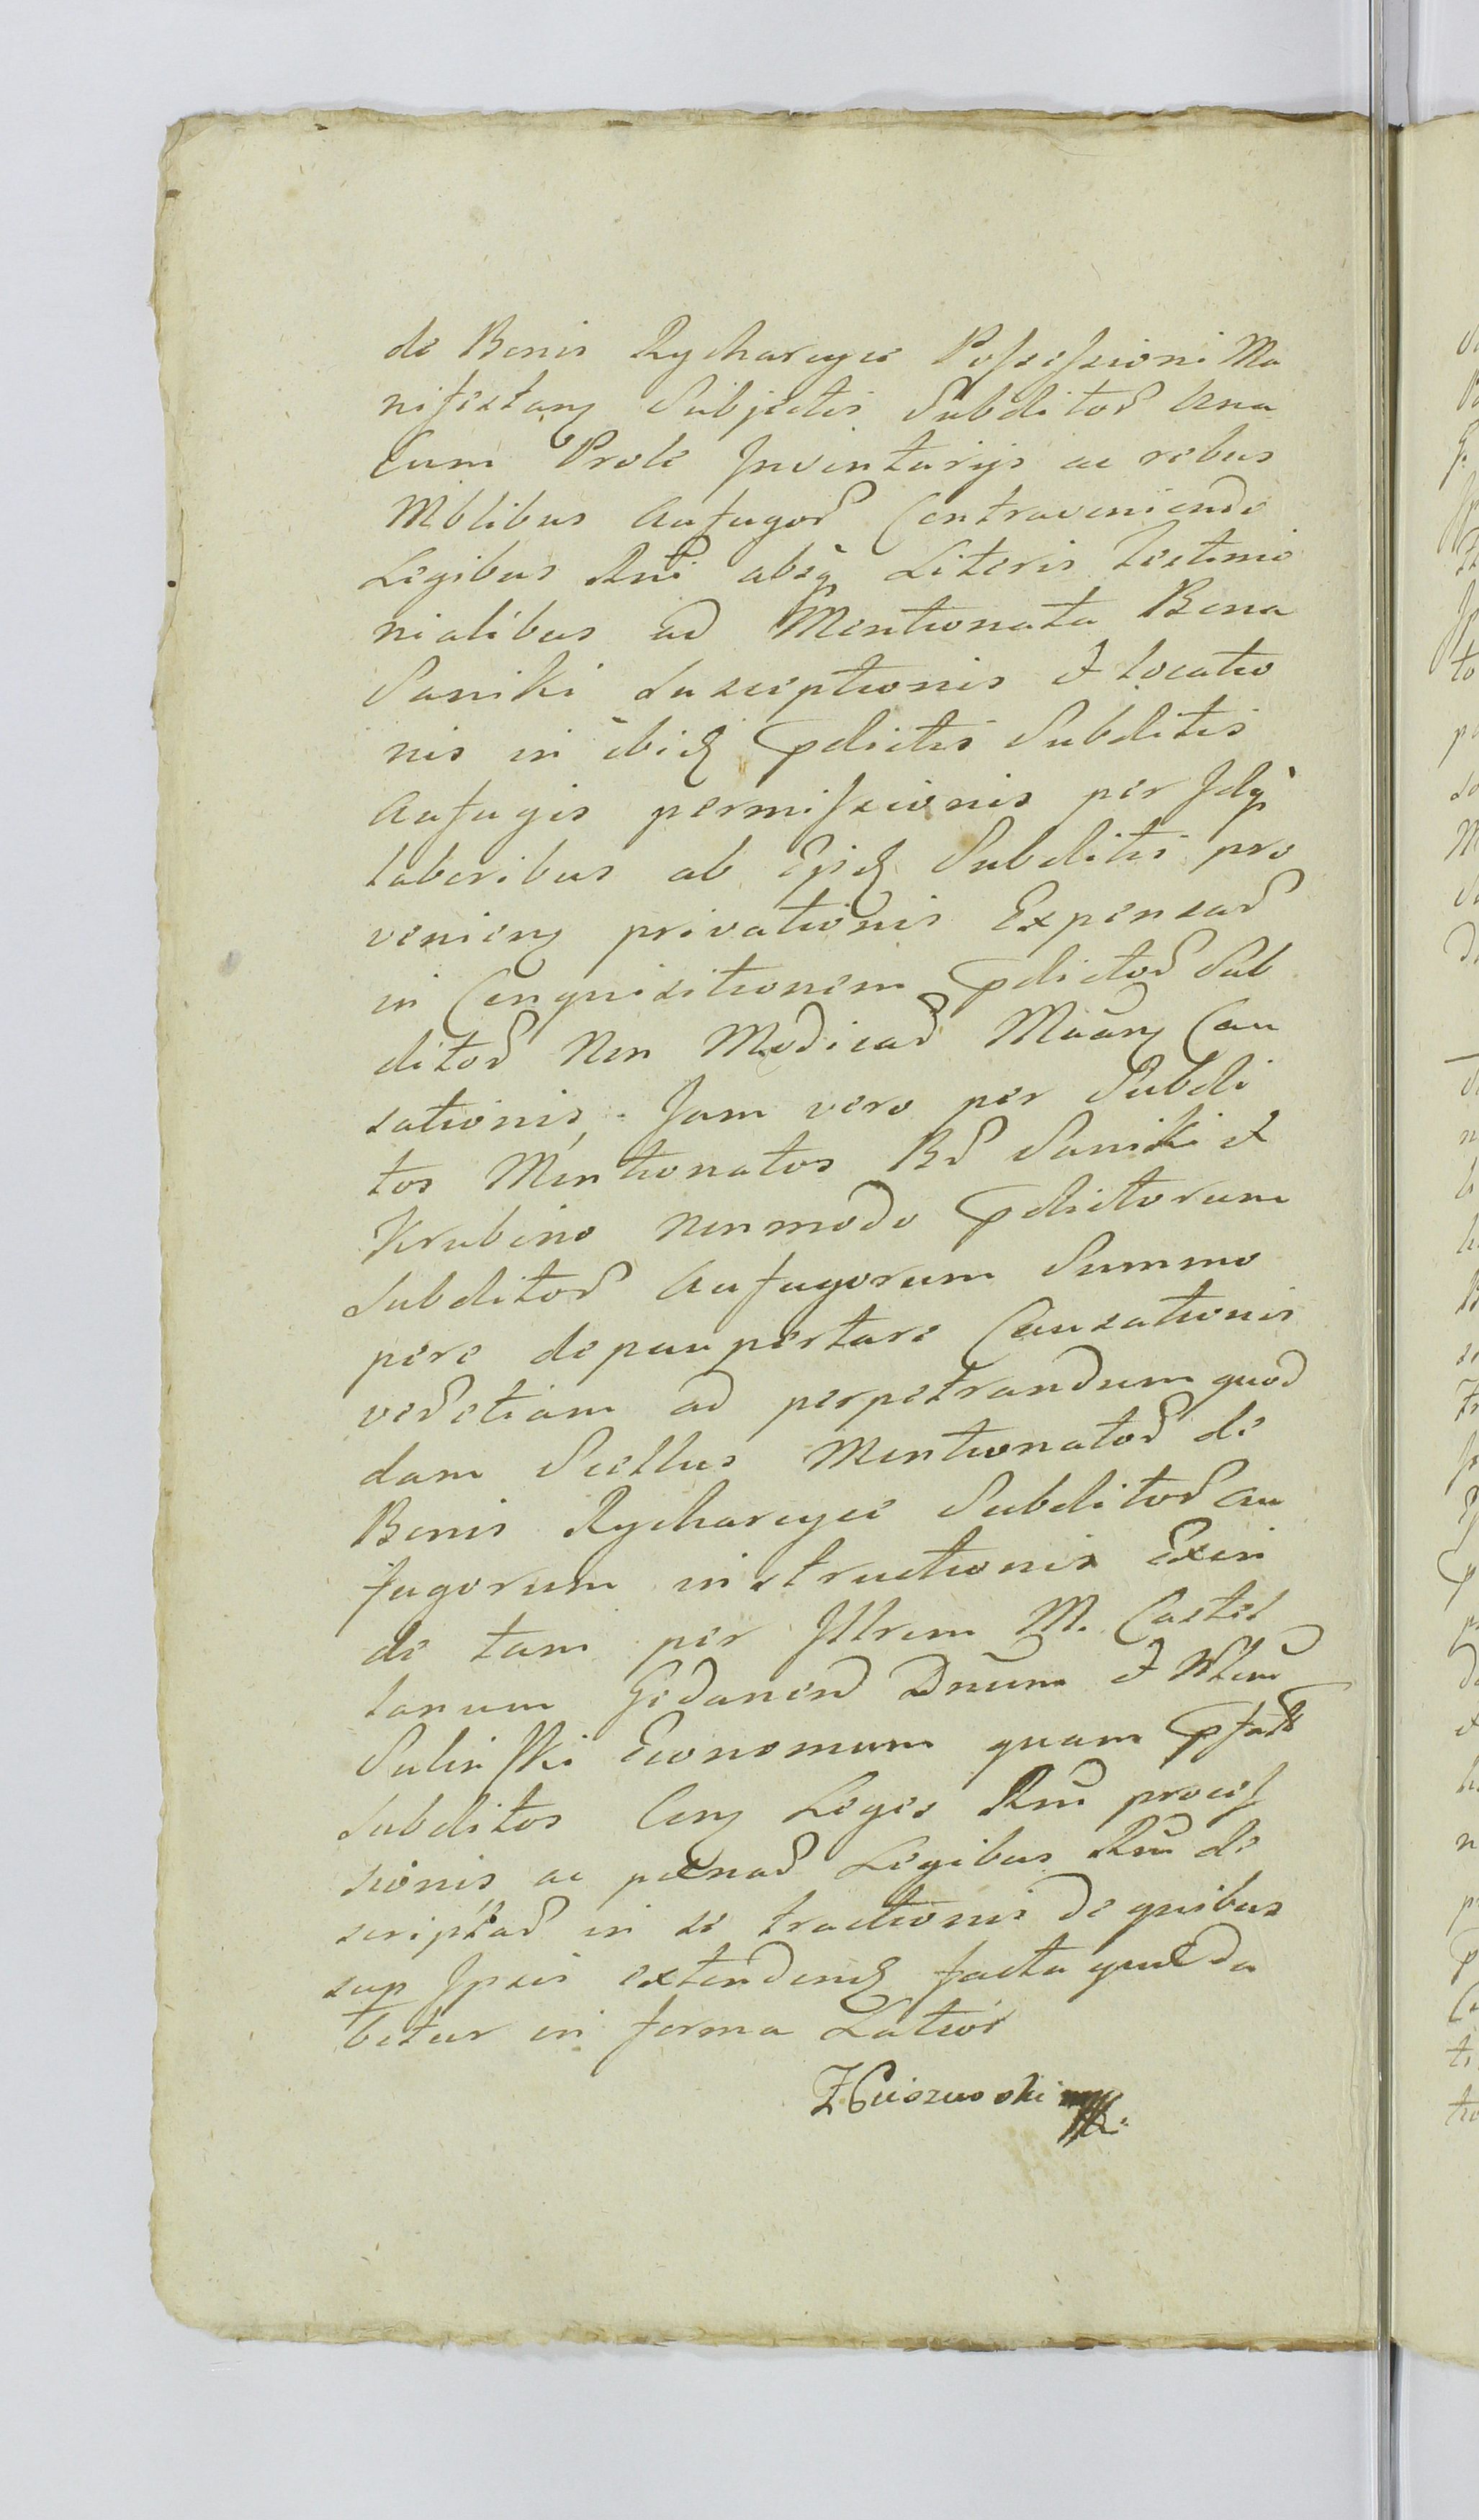 de Bonis Rycharcyce Possessioni Ma
nifestanȝ Subjectis Subditoꝝ Una
Cum Prole Inventarijs ac rebus
Mblibus Aufugoꝝ Contraveniendo
Legibus Rni absq̀ Literis Testimo
nialibus ad Mentionata Bona
Saniki Susceptionis et locatio
nis in ibidꝫ pdictis Subditis
Aufugis permissionis per Idq̀
laboribus ab Ejsdꝫ Subditis pro
venienȝ privationis Expensaꝝ
in Conquisitionem pdictoꝝ Sub
ditoꝝ Non Modicaꝝ Maanȝ Cau
sationis, Jam vero per Subdi
tos Mentionatos Bꝝ Saniki et
Krubino nonmodo pdictorum
Subditoꝝ Aufugorum Summo
pere depaupertare Causationis
veꝝ etiam ad perpetrandum quod
dam Scellus Mentionatoꝝ de
Bonis Rycharcyce Subditoꝝ Au
fugorum instructionis Exin
de tam per Illrem M. Castel
lanum Gedanenꝝ Dnum et
Sulinski Economum quam pfatos
Subditos Conȝ Leges Rni proces
sionis ac pœnaꝝ Legibus Rni de
scriptaꝝ in se tractionis De quibus
sup Ipsis extendendꝫ facta quæ Da
betur in forma Latiori